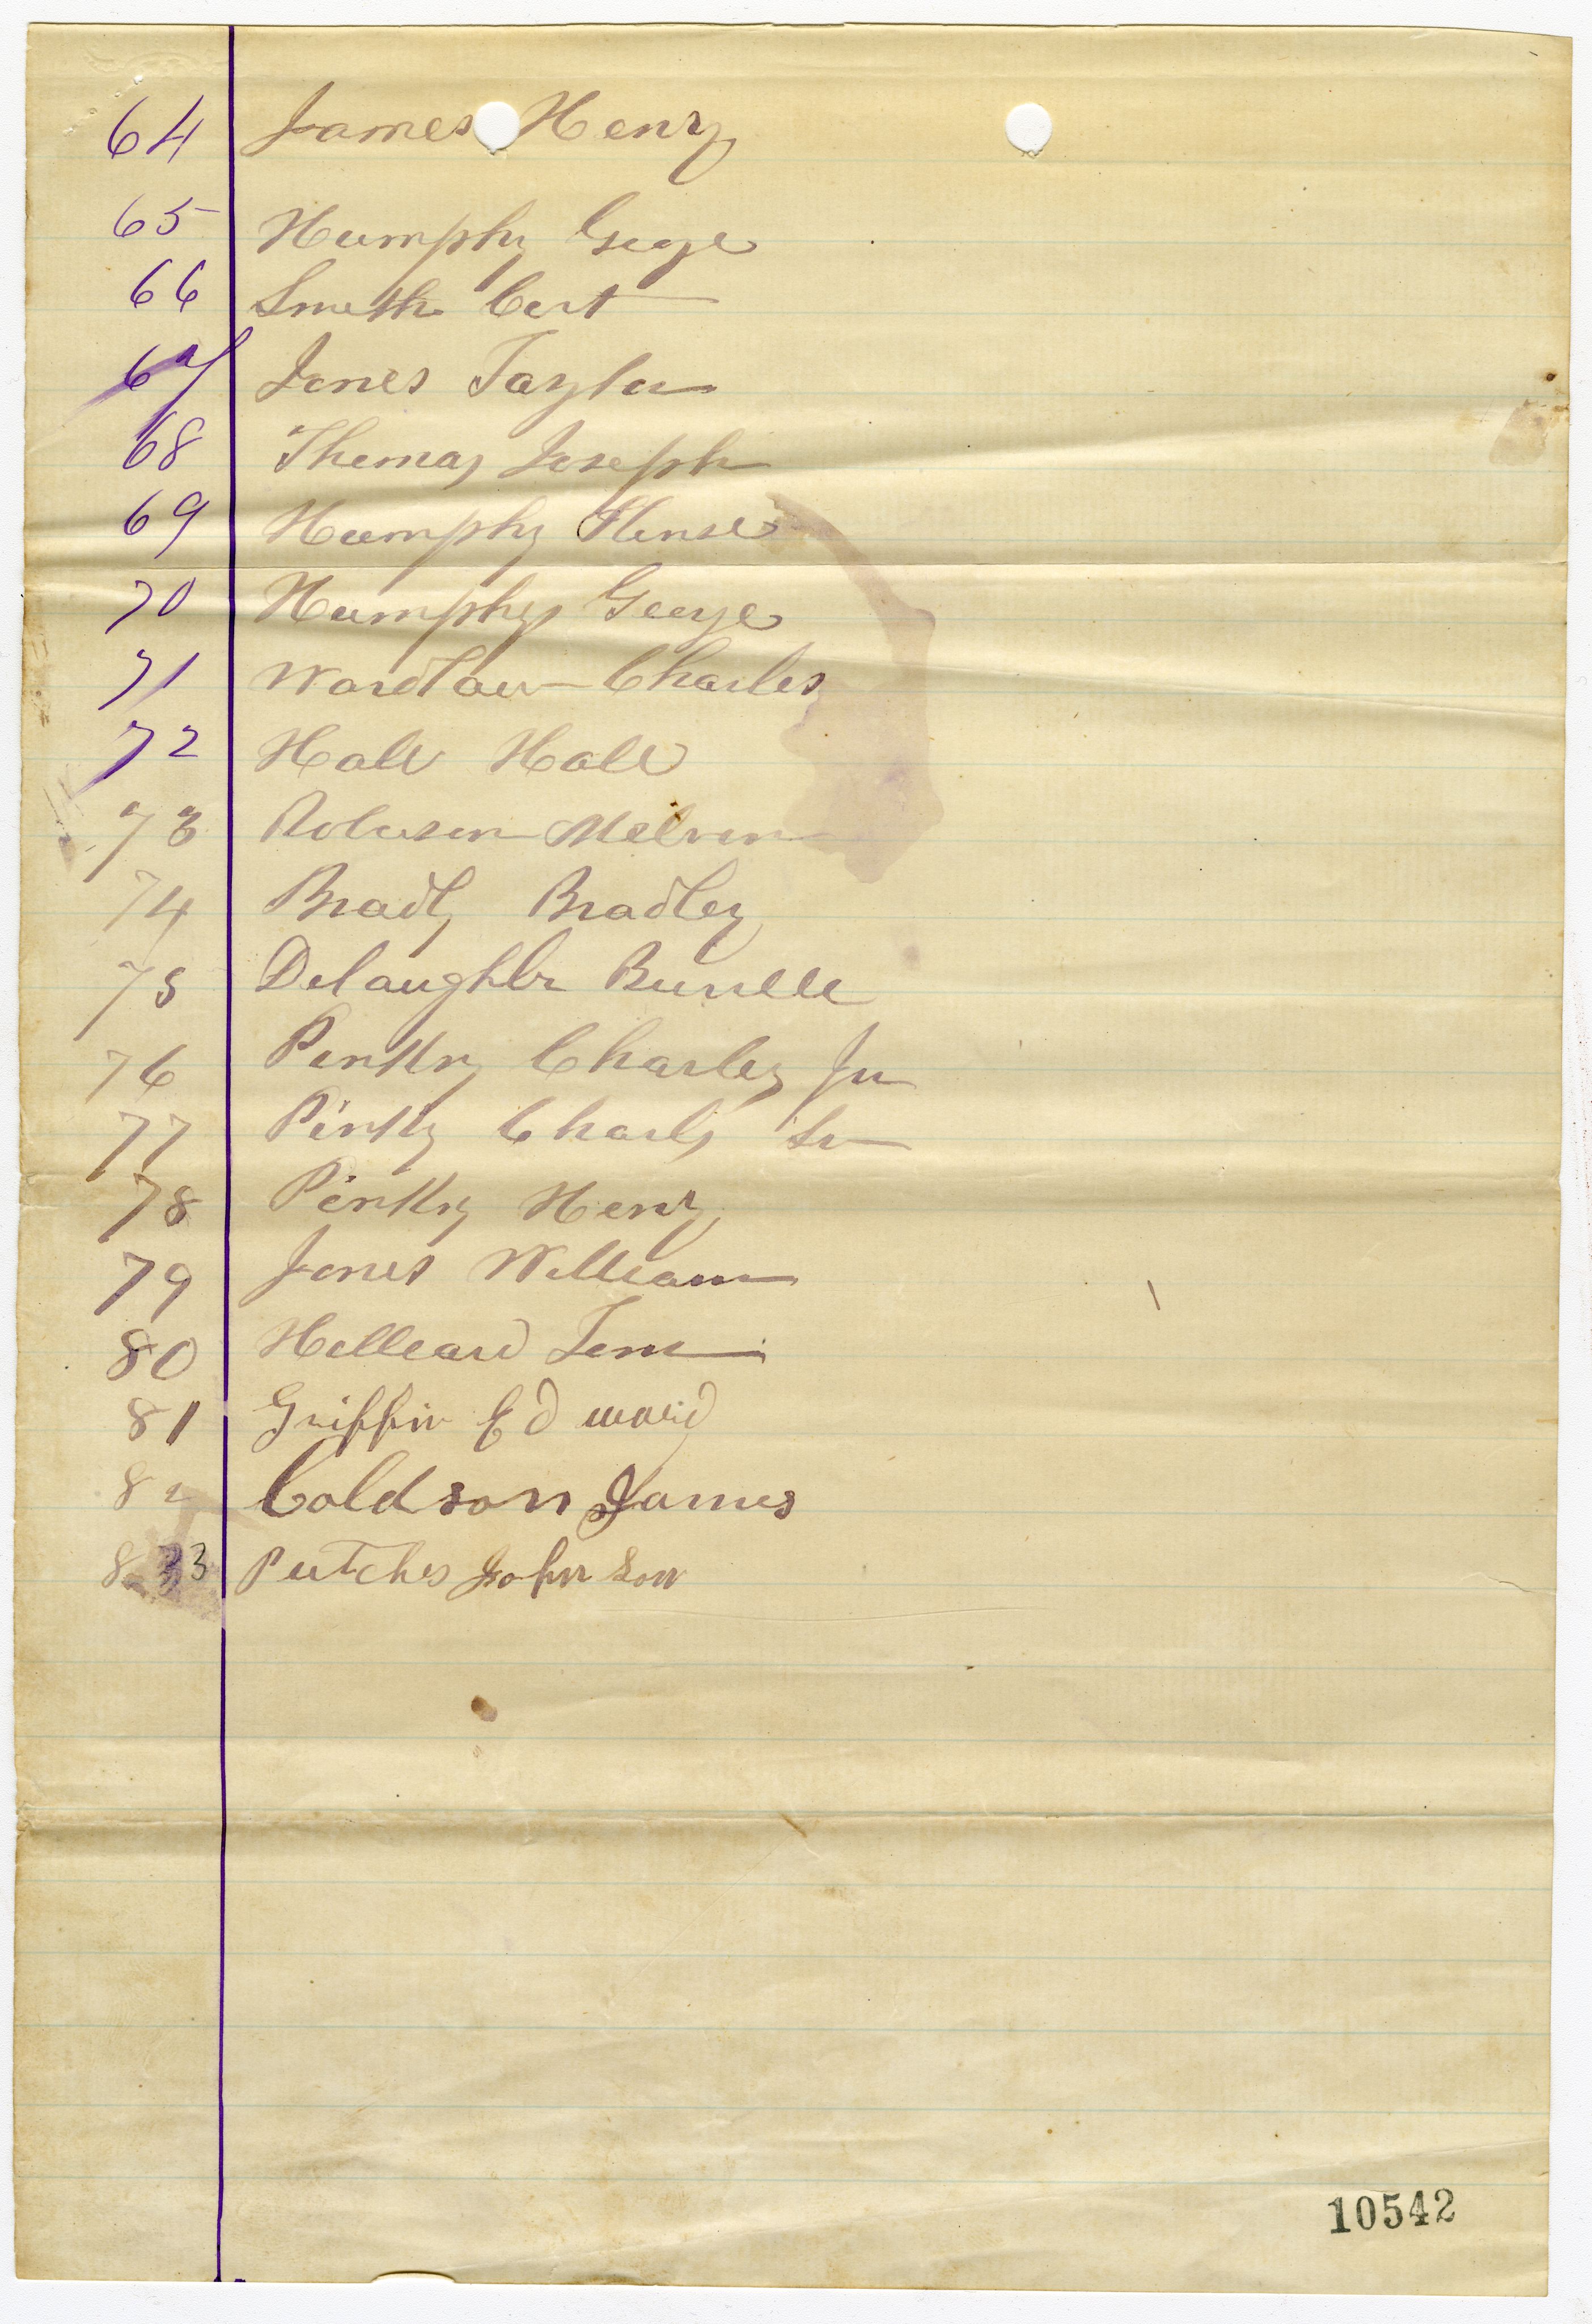 64 James Henry
65 Humphy George
66 Smith Cert
67 Jones Taylor
68 Thomas Joseph
69 Humphy
70 Humphy George
71 Wardlaw Charles
72 Hall Hall
73 Roberson Melven
74 Bradly Bradley
75 Delaughter Burrell
76 Pinkny Charley Jr
77 Pinkny Charly Sr
78 Pinkny Henry
79 Jones William
80 Hilleard Jim
81 Griffin Ed ward
82 Coldson James
83 Putches John son
10542